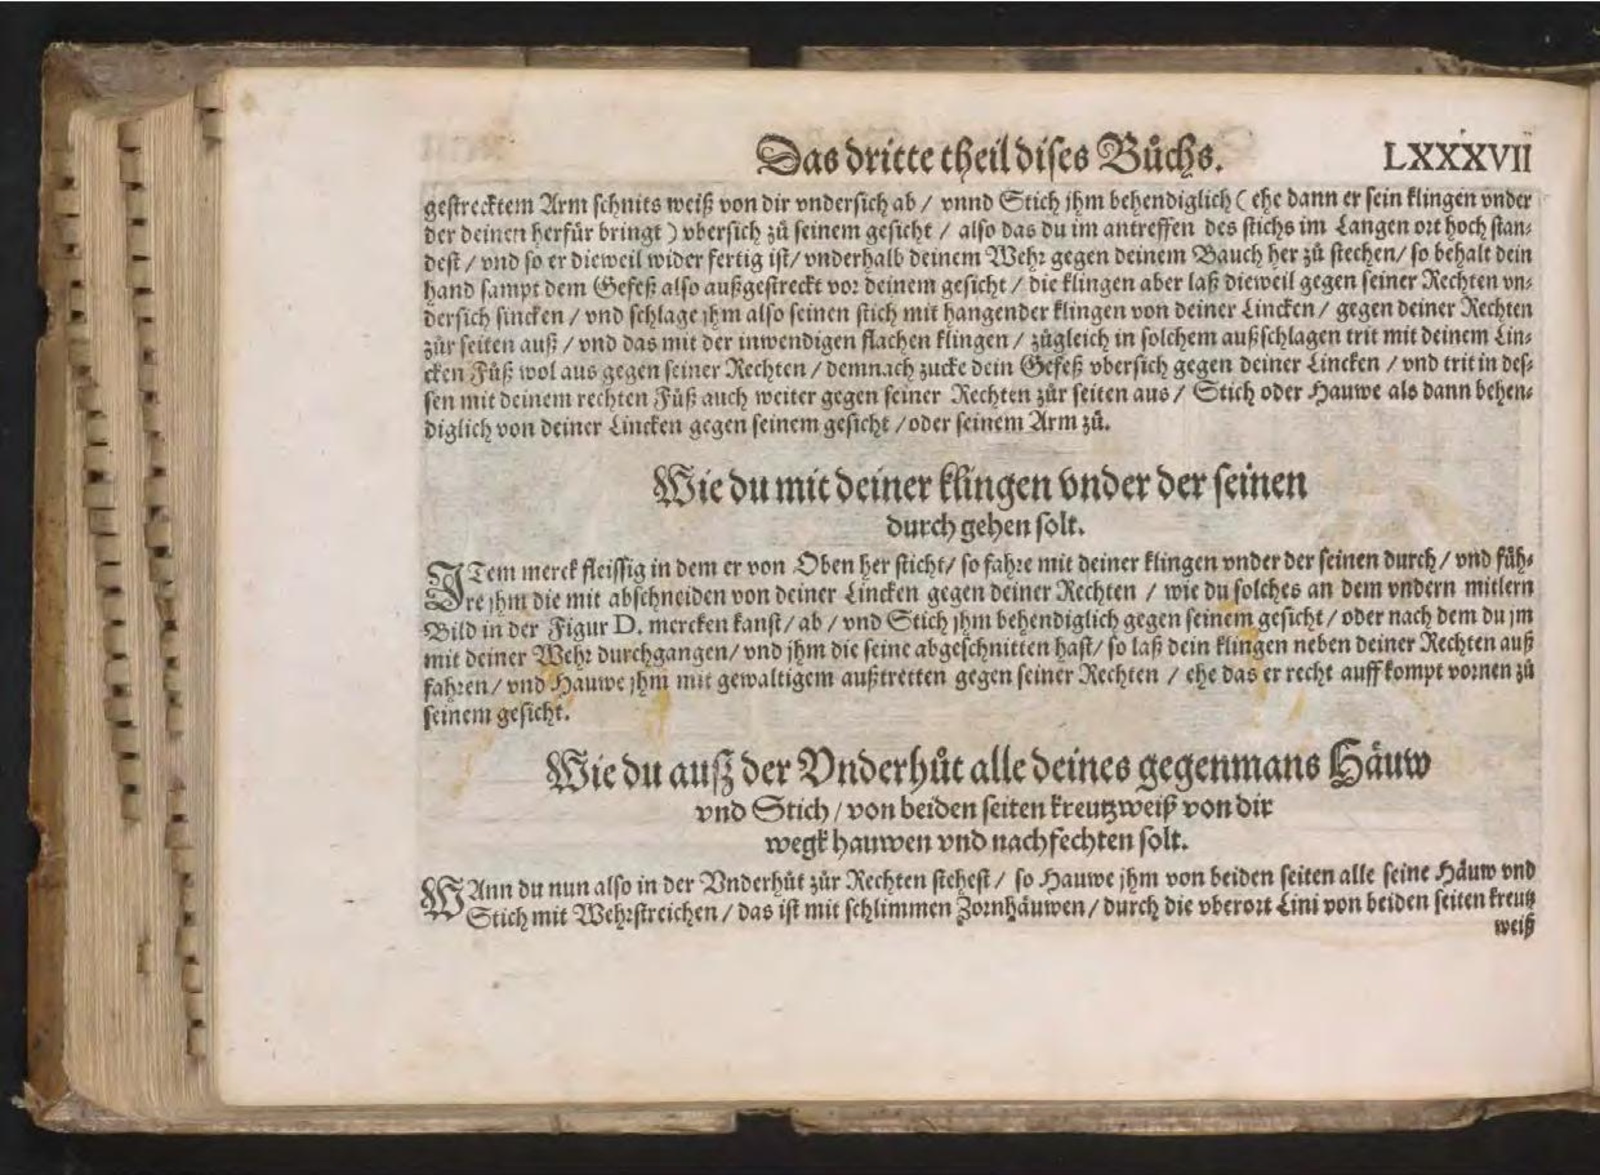 Das dritte theil dises Bůchs. LXXXVII
gestrecktem Arm schnits weiß von dir vndersich ab / vnnd Stich jhm behendiglich ( ehe dann er sein klingen vnder
der deinen herfür bringt ) vbersich zů seinem gesicht / also das du im antreffen des stichs im Langen ort hoch stan-
dest / vnd so er dieweil wider fertig ist / vnderhalb deinem Wehr gegen deinem Bauch her zů stechen / so behalt dein
hand sampt dem Gefeß also außgestreckt vor deinem gesicht / die klingen aber laß dieweil gegen seiner Rechten vn-
dersich sincken / vnd schlage jhm also seinen stich mit hangender klingen von deiner Lincken / gegen deiner Rechten
zůr seiten auß / vnd das mit der inwendigen flachen klingen / zůgleich in solchem außschlagen trit mit deinem Lin-
cken Fůß wol aus gegen seiner Rechten / demnach zucke dein Gefeß vbersich gegen deiner Lincken / vnd trit in des-
sen mit deinem rechten Fůß auch weiter gegen seiner Rechten zůr seiten aus / Stich oder Hauwe als dann behen-
diglich von deiner Lincken gegen seinem gesicht / oder seinem Arm zů.
Wie du mit deiner klingen vnder der seinen
durch gehen solt.
ITem merck fleissig in dem er von Oben her sticht / so fahre mit deiner klingen vnder der seinen durch / vnd füh-
re jhm die mit abschneiden von deiner Lincken gegen deiner Rechten / wie du solches an dem vndern mitlern
Bild in der Figur D. mercken kanst / ab / vnd Stich jhm behendiglich gegen seinem gesicht / oder nach dem du jm
mit deiner Wehr durchgangen / vnd jhm die seine abgeschnitten hast / so laß dein klingen neben deiner Rechten auß
fahren / vnd Hauwe jhm mit gewaltigem außtretten gegen seiner Rechten / ehe das er recht auff kompt vornen zů
seinem gesicht.
Wie du auß der Vnderhůt alle deines gegenmans Häuw
vnd Stich / von beiden seiten kreutzweiß von dir
wegk hauwen vnd nachfechten solt.
WAnn du nun also in der Vnderhůt zůr Rechten stehest / so Hauwe jhm von beiden seiten alle seine Häuw vnd
Stich mit Wehrstreichen / das ist mit schlimmen Zornhäuwen / durch die vberort Lini von beiden seiten kreutz
weiß